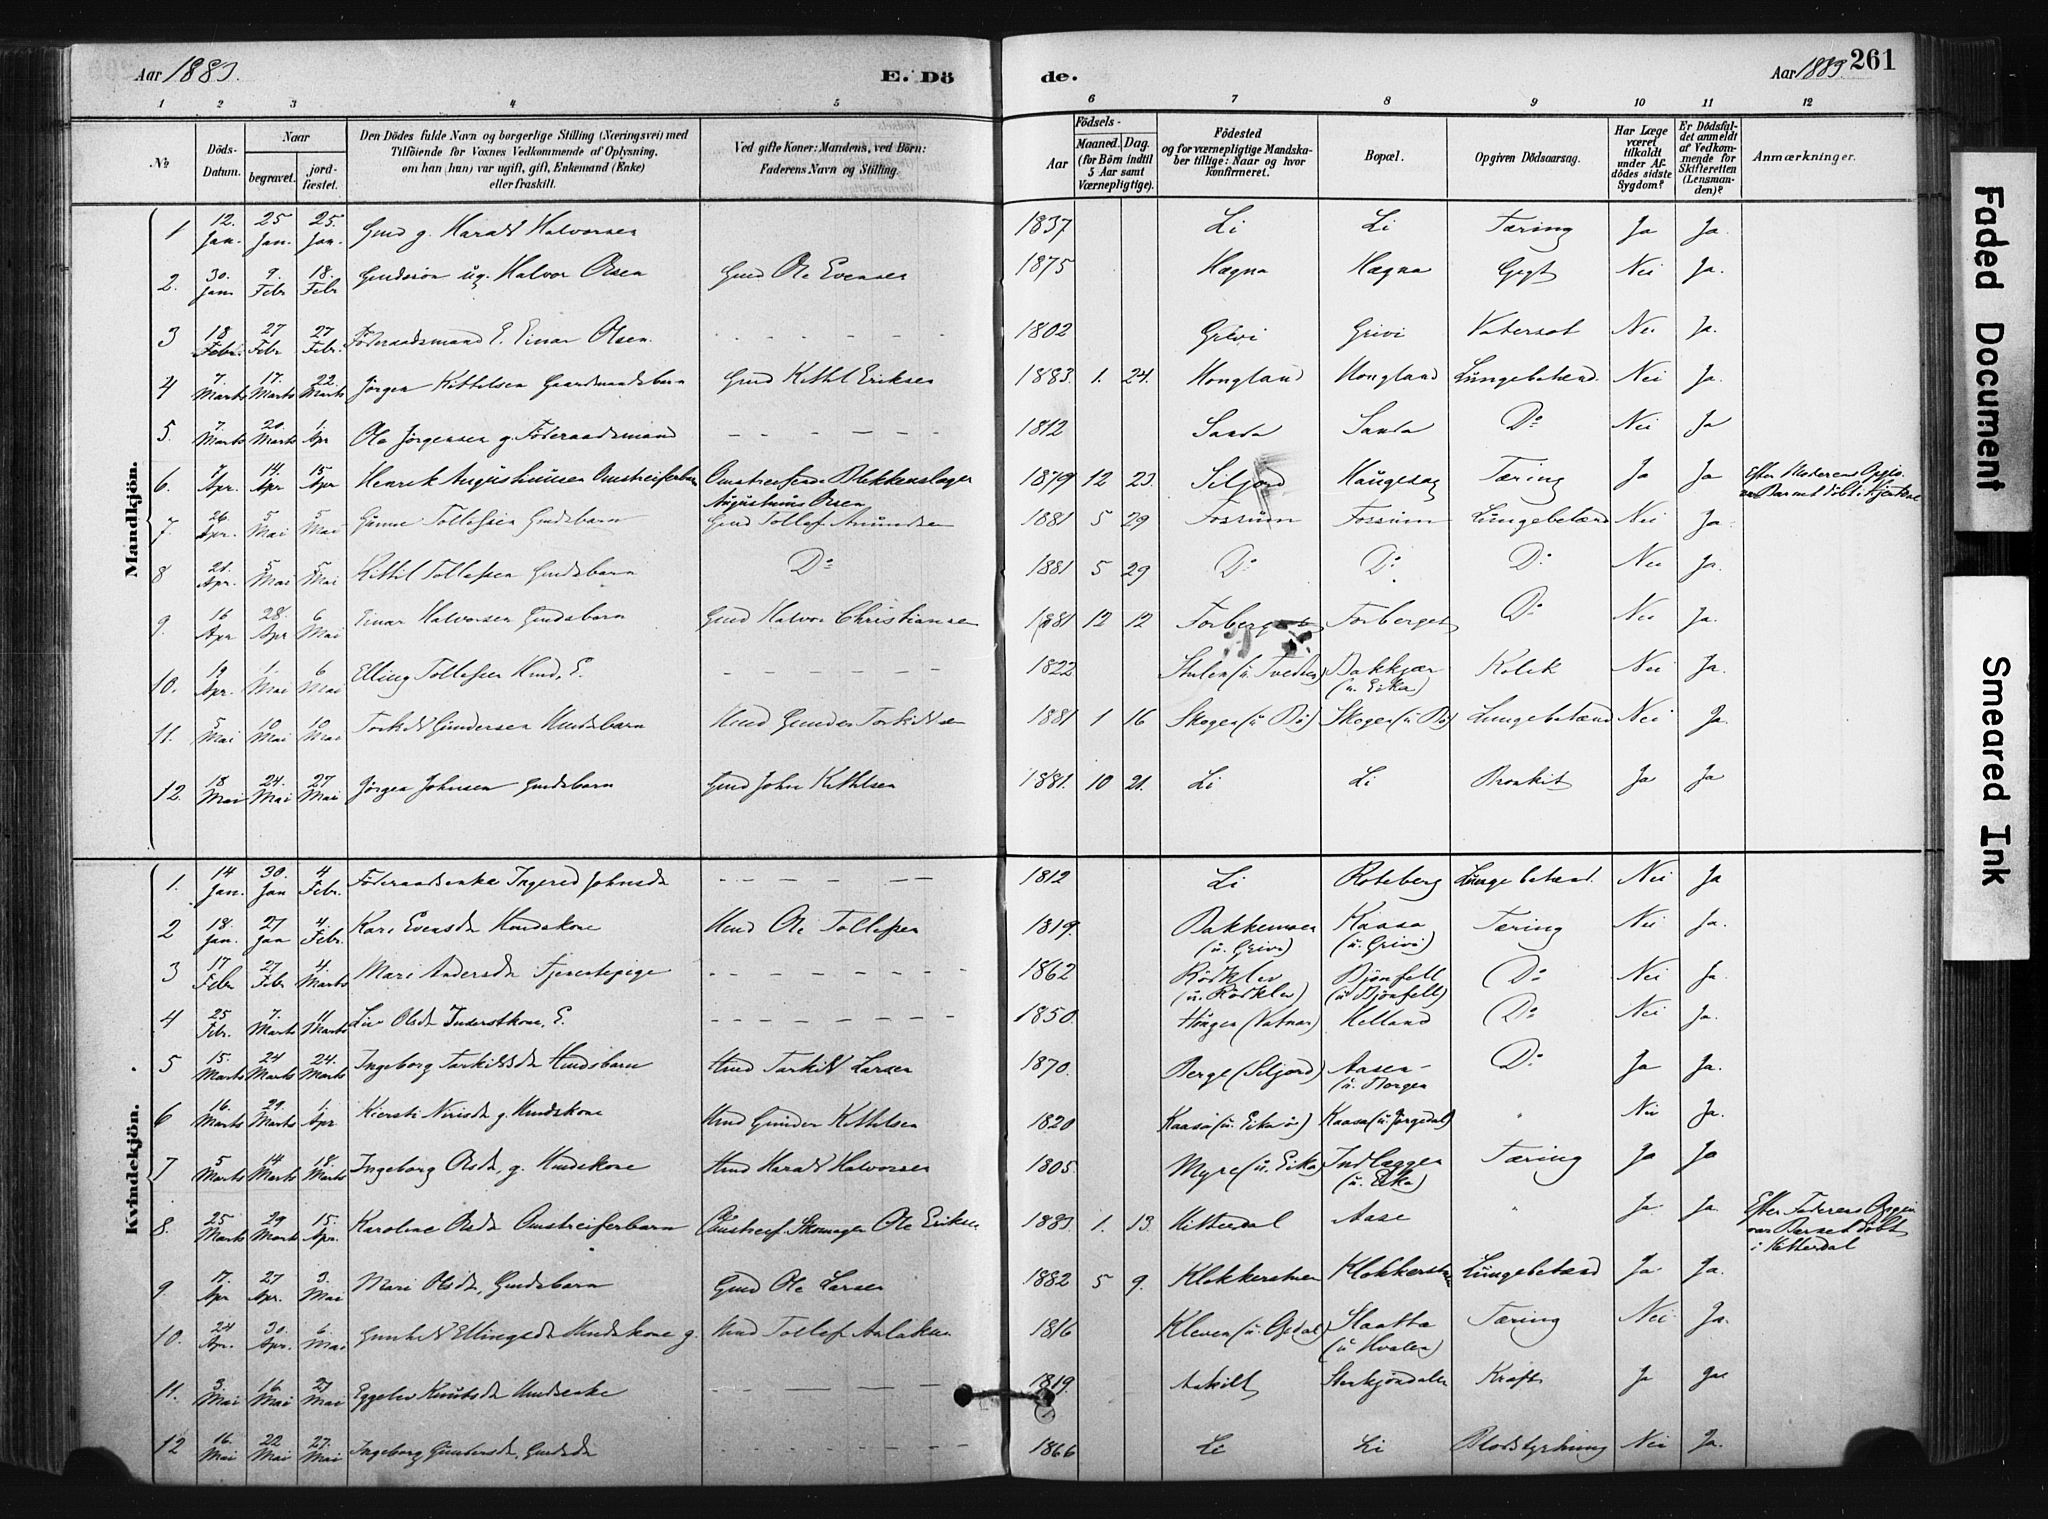 Aar 1883.
E. Dö
de.
Aar 1883.
261
1 2 3 4 5 6 7 8 9 10 11 12
No
Döds-Datum.
Naar
begravet.
jordfæstet.
Den Dödes fulde Navn og borgerlige Stilling (Næringsvei) med
Tilföiende for Voxnes Vedkommende af Oplysning,
om han (hun) var ugift, gift, Enkemand (Enke)
eller fraskilt.
Ved gifte Koner: Mandens, ved Börn:
Faderens Navn og Stilling.
Födsels-
Aar
Maaned. Dag.
(for Börn indtil
5 Aar samt
Værnepligtige).
Födested
og for værnepligtige Mandska-
ber tillige: Naar og hvor
konfirmeret.
Bopæl.
Opgiven Dödsaarsag.
Har Læge
været
tilkaldt
under Af-
dödes sidste
Sygdom?
Er Dödsfal-
det anmeldt
af Vedkom-
mende for
Skifteretten
(Lensman-
den)?
Anmærkninger.
Mandkjön.
1 12. Jan. 25 Jan. 25. Jan. Gmd g. Harald Halvorsen 1837 Li Li Tæring Ja Ja.
2. 30. Jan 9. Febr 18. Febr Gmdssön ug. Halvor Olsen Gmd Ole Evensen 1875 Hægna Hægna Gigt Nei Ja.
3 18 Febr. 27 Febr 27 Febr. Föderaadsmand E. Einar Olsen. 1802 Grivi Grivi Vatersot Nei Ja.
4 7. Marts 17. Marts 22. Marts Jörgen Kittilsen Gaardmandsbarn Gmd Kittil Eriksen 1883. 1. 24. Hongland Hongland Lungebetænd. Nei Ja.
5. 7. Marts 20. Marts 1. Apr Ole Jörgensen g. Föderaadsmand 1812 Sanda Sanda Do Nei Ja
6. 7 Apr. 14. Apr 15 Apr Henrik Augustinusen Omstreiferbarn Omstreifende Blikkenslager Augustinus Olsen 1879 12 23. Siljord Haugesag Tæring Ja Ja Efter Moderens Opgiv. var Barnet döbt i Hjertdal
7. 26. Apr. 5 Mai 5 Mai Gunne Tollefsen Gmdsbarn Gmd Tollef Amundsen 1881 5 29 Fossum Fossum Lungebetænd Nei Ja.
8 21. Apr. 5 Mai 5 Mai Kittil Tollefsen Gmdsbarn Do 1881 5 29 Do Do Do Nei Ja.
9. 16 Apr 28. Apr 6 Mai Einar Halvorsen Gmdsbarn Gmd Halvor Christiansen 1881 12 12 Torberget Torberget Do Nei Ja.
10. 19 Apr. 1. Mai 6 Mai Elling Tollefsen Hmd, E. 1822 Stulen (u. Tvedten) Bakkjær (u. Eika) Kolik Nei Ja.
11. 5 Mai 10 Mai 10 Mai Torkild Gundersen Hmdsbarn Hmd Gunder Torkildsen 1881 1 16 Skogen (u Bö) Skogen (u Bö) Lungebetænd Nei Ja.
12. 18 Mai 24. Mai 27 Mai Jörgen Johnsen Gmdsbarn Gmd John Kittilsen 1881. 10 21. Li Li Bronkit Ja Ja
Kvindekjön.
1. 14 Jan. 30. Jan 4 Febr. Föderaadsenke Ingered Johnsdr 1812 Li Roteberg Lungebetænd. Nei Ja
2 18. Jan. 27 Jan 4. Febr. Kari Evensdr Hmdskone Hmd Ole Tollefsen 1819. Bakkemoen (u. Grivi) Kaasa (u. Grivi) Tæring Nei Ja.
3 17 Febr 27 Febr 4. Marts Mari Andersdr Tjenestepige 1862 Rödklev (u. Rödklev) Bjönfell (u Bjönfell) Do Nei Ja.
4 25 Febr. 7. Marts 4 Marts Liv Olsdr Inderstkone, E. 1850. Haugen (Vatnar) Helland Do Nei Ja.
5 15. Marts 24 Marts 24. Marts Ingeborg Tarkildsdr Hmdsbarn Hmd Tarkild Larsen 1870. Berge (Siljord) Aasen (u. Borgen Do Ja Ja.
6 16. Marts 29. Marts 1. Apr Kiersti Nirisdr g. Hmdskone Hmd Gunder Kittilsen 1820 Kaasa (u. Eika) Kaasa (u. Jorgedal) " Nei Ja.
7 5 Marts 14 Marts 18. Marts Ingeborg Olsdr, g. Hmdskone Hmd Harald Halvorsen 1805. Myre (u. Eika) Indlæggen (u. Eika) Tæring Ja Ja
8. 25 Marts 29 Marts 15. Apr. Karoline Olsdr Omstreiferbarn Omstreif. Skomager Ole Eriksen 1883 1. 13. Hitterdal Aase " Ja Ja. Efter Faderens Opgiv var Barnet döbt i Hitterdal
9 17. Apr 27 Apr. 3. Mai Mari Olsdr, Gmdsbarn Gmd Ole Larsen 1882 5 9. Klokkerstuen Klokkerstuen Lungebetænd Ja Ja.
10. 24 Apr. 30. Apr. 6 Mai Gunhild Ellingsdr Hmdskone g. Hmd Tollef Aslaksen 1816 Kleven (u. Gjedal) Slaatta (u Hvalen) Tæring Nei Ja.
11. 3. Mai 16 Mai 27 Mai Eggelev Knutsdr Hmdsenke 1819. Aakilt Sterkjöndalen Kræft Ja Ja
12 16. Mai 22 Mai 27. Mai Ingeborg Gundersdr, Gmdsdr 1866 Li Li Blodstyrtning Nei Ja.
Faded Document
Smeared Ink